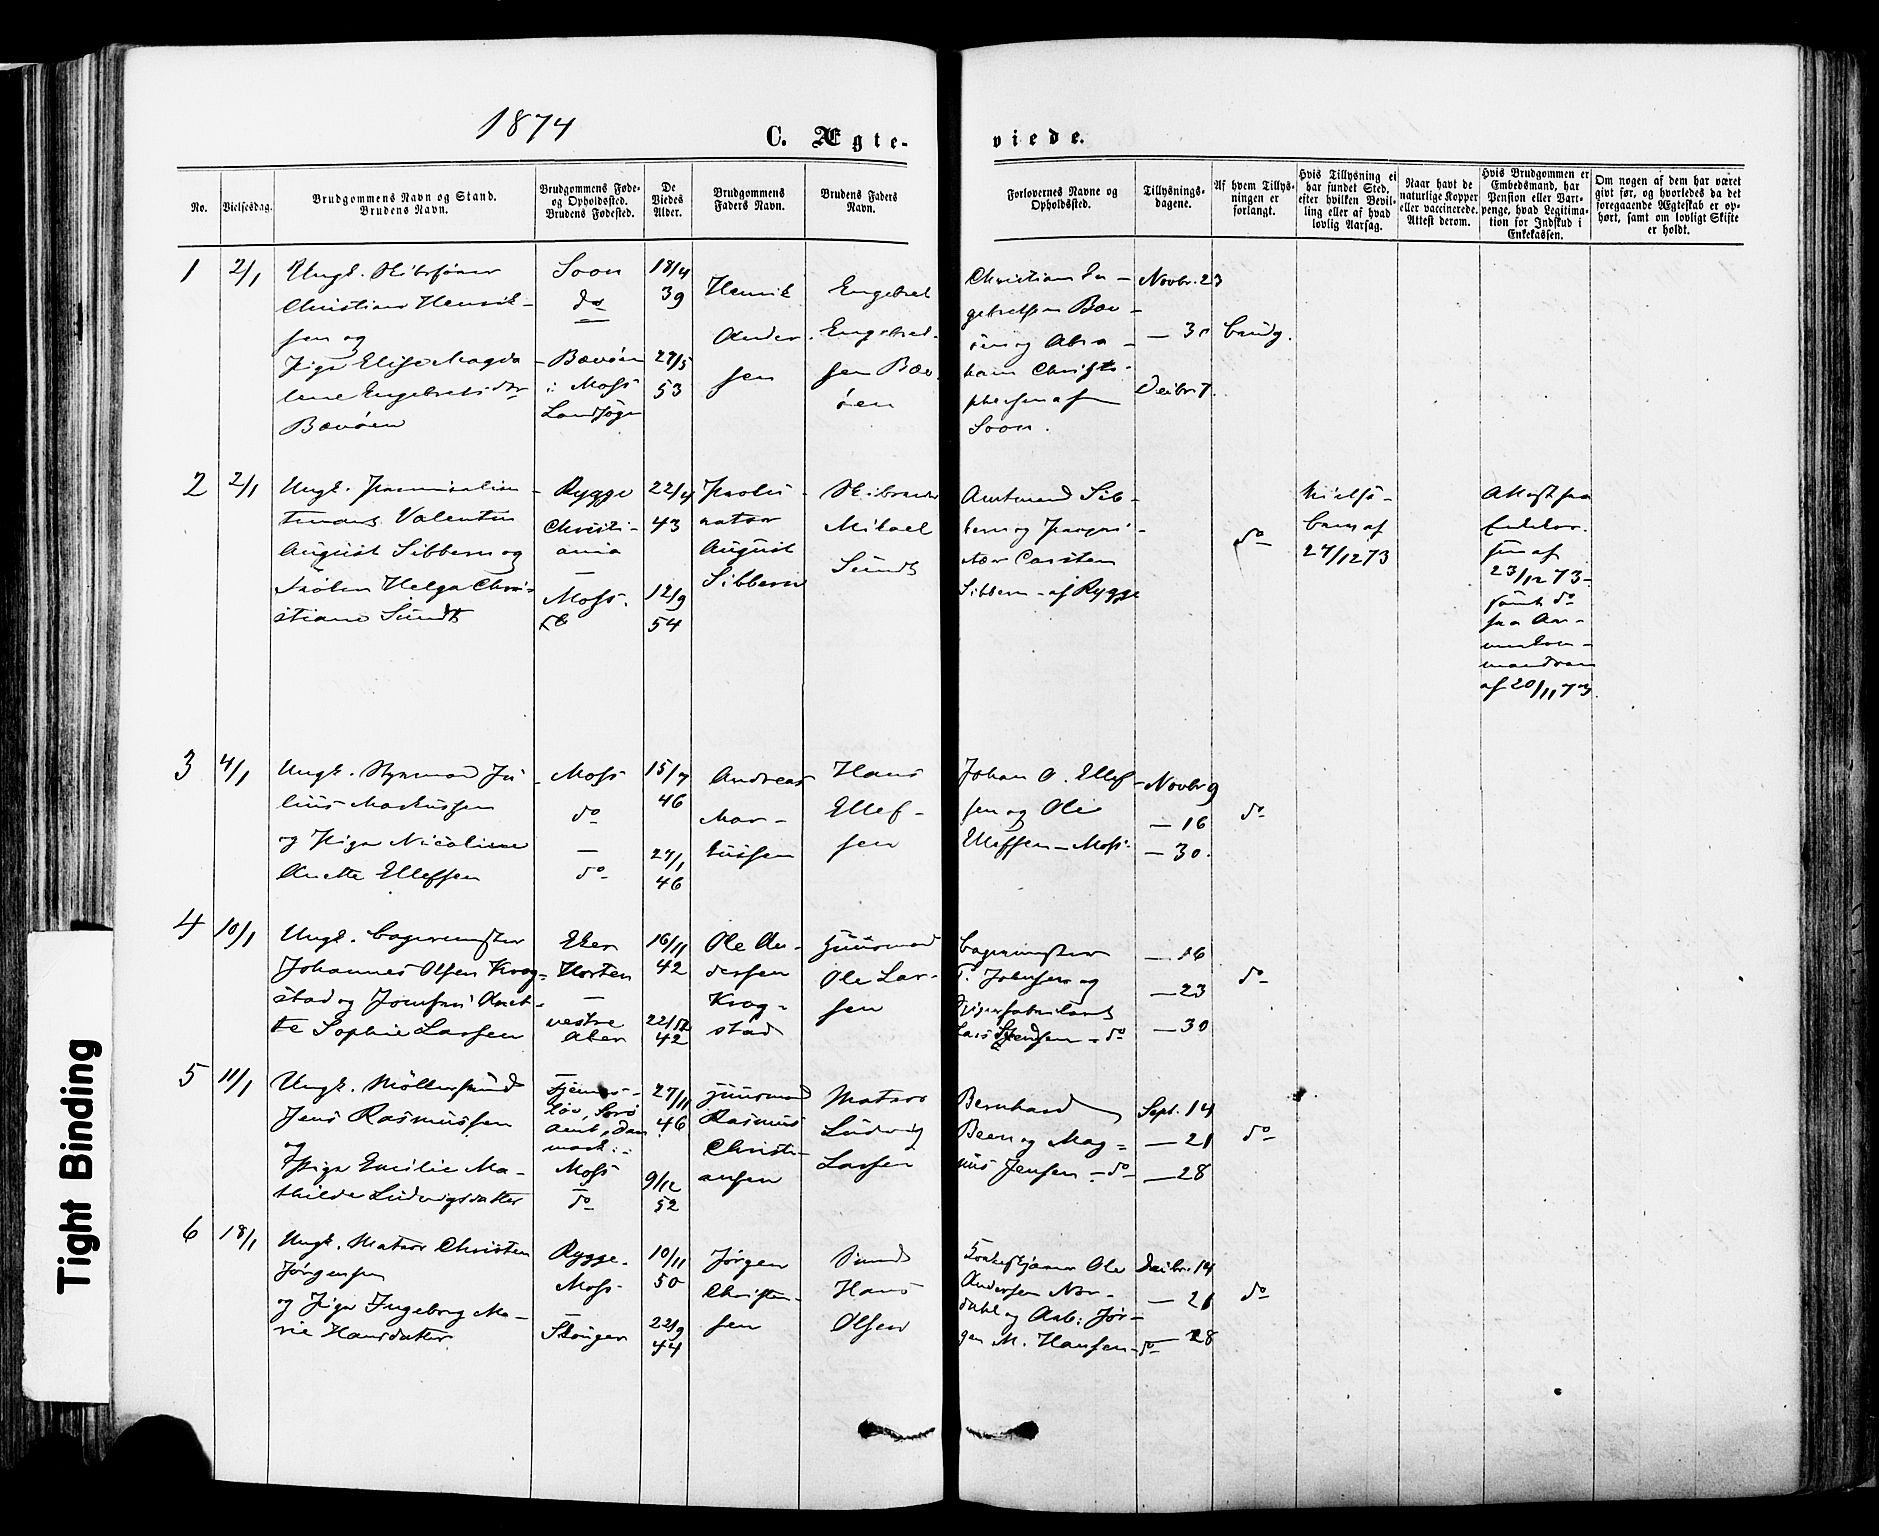 1874
C. Ægte-
viede.
No.
Vielsesdag.
Brudgommens Navn og Stand.
Brudens Navn.
Brudgommens Føde-
og Opholdssted.
Brudens Fødested.
De
Viedes
Alder.
Brudgommens
Faders Navn.
Brudens Faders
Navn.
Forlovernes Navne og
Opholdssted.
Tillysnings-
dagene.
Af hvem Tillys-
ningen er
forlangt.
Hvis Tillysning ei
har fundet Sted,
efter hvilken Bevil-
ling eller af hvad
lovlig Aarsag.
Naar havt de
naturlige Kopper
eller vaccinerede.
Attest derom.
Hvis Brudgommen er
Embedsmand, har
Pension eller Vart-
penge, hvad Legitima-
tion for Indskud i
Enkekassen.
Om nogen af dem har været
givt før, og hvorledes da det
foregaaende Ægteskab er op-
hørt, samt om lovligt Skifte
er holdt.
1
2/1
Ungk. Skibsfører
Christian Henrik-
sen og
Pige Elise Magda-
lene Engebretsdtr
Bævøen
Soon
do
Bævøen
i Moss
Landsogn
18/4
39
27/5
53
Henrik
Ander-
sen
Engebret
Engebret-
sen Bæv-
øen
Christian En-
gebretsen Bæv-
øen og Abra-
ham Christo-
phersen af
Soon.
Novbr. 23
— 30
Decbr. 7.
brudg.
2
2/1
Ungk. Premierlieu-
tenant Valentin
August Sibbern og
Frøken Helga Chri-
stiane Sundt
Rygge
Christi-
ania
—
Moss.
22/4
43
12/9
54
August
Sibbern
Mikael
Sundt
Amtmand Sib-
bern og Propri-
etær Carsten
Sibbern - af Rygge
do
Kielse-
brev af
27/12 73
Attest fra
Enkekas-
sen af
23/12 73-
samt do
fra Ar-
meekom-
mandoen
af 20/11 73.
3
4/1
Ungk. Styrmand Ju-
lius Markussen
og Pige Nicoline
Anette Ellefsen
Moss
do
—
do
15/7
46
27/1
46
Andreas
Mar-
kussen
Hans
Ellef-
sen
Johan O. Ellef-
sen og Ole
Ellefsen - Moss.
Novbr 9
— 16
— 30.
do
4
10/1
Ungk. Bagermester
Johannes Olsen Krog-
stad og Jomfru Anet-
te Sophie Larsen
Eker
Horten
—
vestre
Aker
16/11
42
22/12
42
Ole An-
dersen
Krog-
stad
Huusmand
Ole Lar-
sen
Bagermester
T. Johnsen og
Lars Svendsen - do
— 16
— 23
— 30
do
5
11/1
Ungk. Møllersvend
Jens Rasmussen
og
Pige Emilie Ma-
thilde Ludvigsdatter
Fjennes-
løv, Sorø
Amt, Dan-
mark.
Moss
do
27/11
46
9/12
52
Huusmand
Rasmus
Christi-
ansen
Matros
Ludvig
Larsen
Bernhard
Been og Mag-
nus Jensen - do
Sept. 14
— 21
— 28
do
6
18/1
Ungk. Matros Christen
Jørgensen
og Pige Ingeborg Ma-
rie Hansdatter
Rygge.
Moss
Stange
10/11
50
22/9
44
Jørgen
Christen-
sen
Smed
Hans
Olsen
Ole
Andersen Nor-
dahl og Arb. Jør-
gen M. Hansen - do
Decbr. 14
— 21
— 28
do
Tight Binding